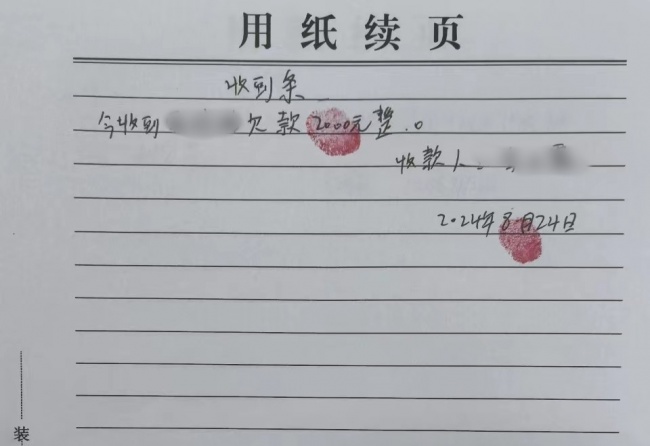 用纸续页
收到条
今收到 欠款2000元整。
收款人:
2024年8月24日
装